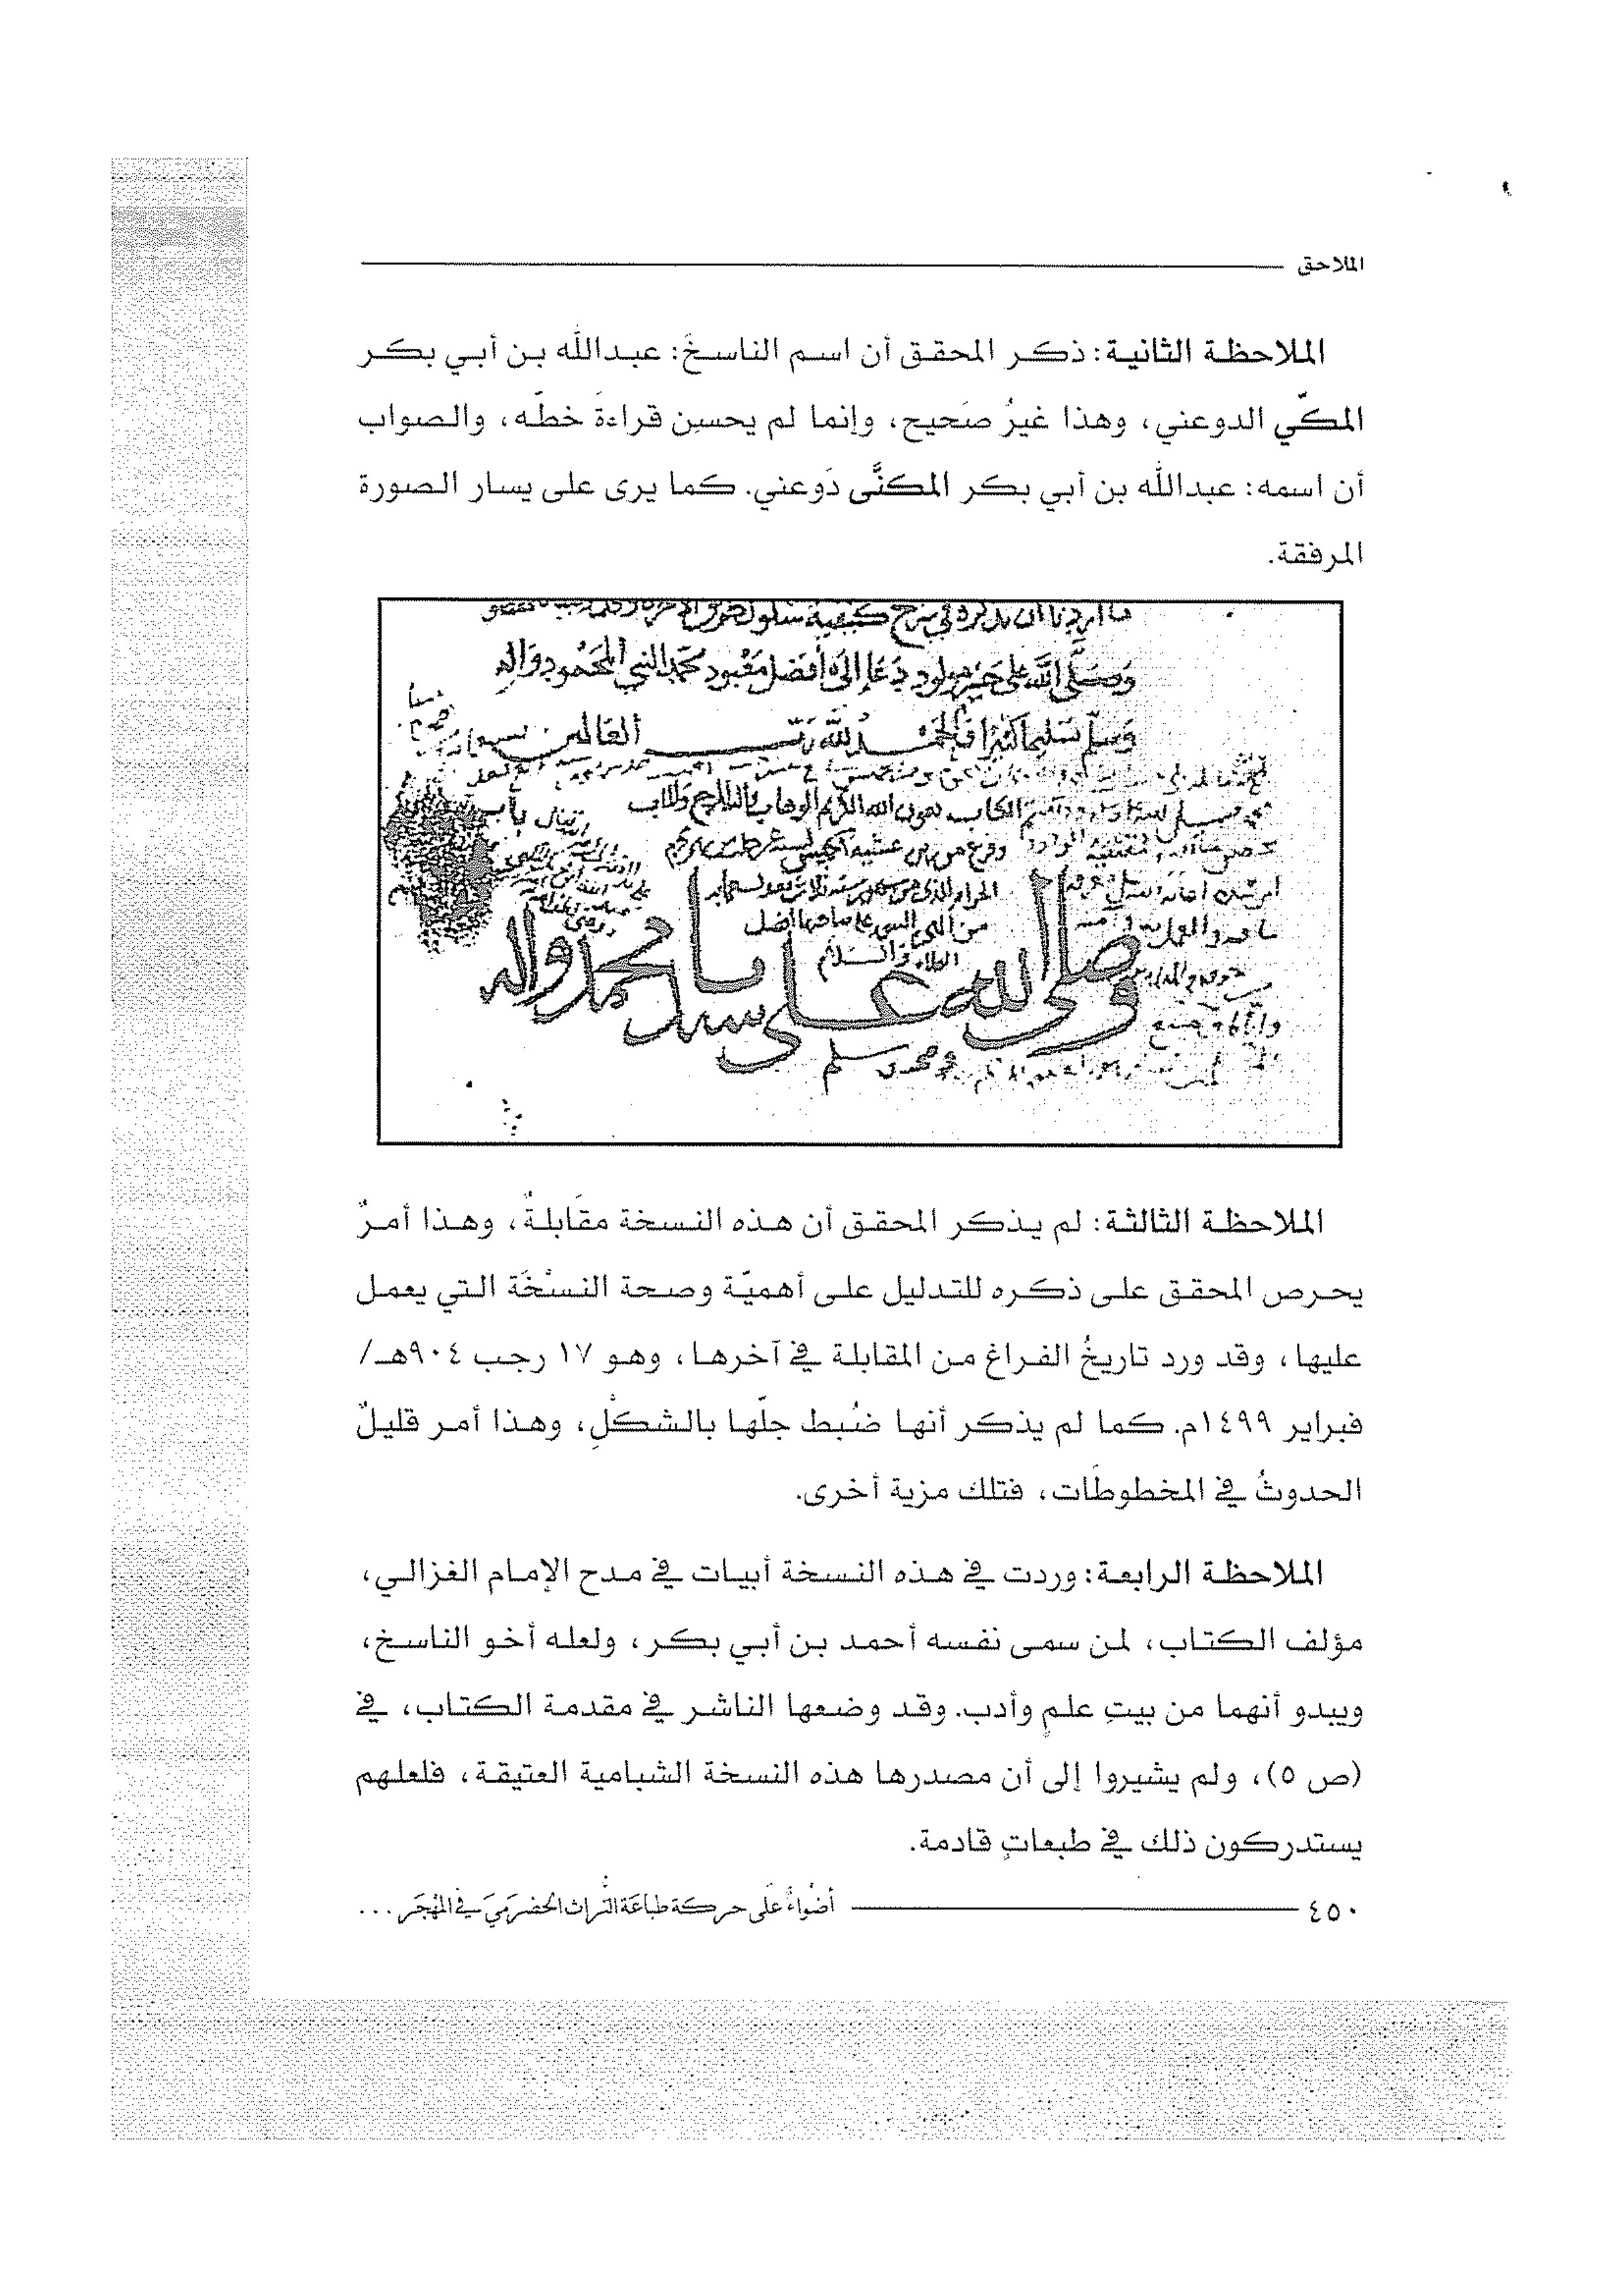 الملاحق
الملاحظة الثانية: ذكر المحقق أن اسم الناسخ: عبدالله بن أبي بكر
المكّي الدوعني، وهذا غيرُ صَحيح، وإنما لم يحسِن قراءةَ خطّه، والصواب
أن اسمه: عبدالله بن أبي بكر المكنَّى دَوعني. كما يرى على يسار الصورة
المرفقة.
وَصَلَّى اللَّهُ عَلَى خَيْرِ مولود دَعَا إِلَى أَفْضَل مَعْبُود مُحَمَّد النبي المَحْمُود وَآلِهِ
وَسَلَّم تَسْلِيمًا كَثِيرًا وَالْحَمْدُ لِلَّهِ رَبِّ العَالَمِين
الكتاب بعون الله الكريم الوهاب
وفرغ من
وصلى الله على سيدنا محمد واله
وصحبه وسلم
الملاحظة الثالثة: لم يذكر المحقق أن هذه النسخة مقَابلةٌ، وهذا أمرٌ
يحرص المحقق على ذكره للتدليل على أهميّة وصحة النسْخَة التي يعمل
عليها، وقد ورد تاريخُ الفراغ من المقابلة في آخرها، وهو ١٧ رجب ٩٠٤هـ/
فبراير ١٤٩٩م. كما لم يذكر أنها ضُبط جلّها بالشكْلِ، وهذا أمر قليلٌ
الحدوثُ في المخطوطَات، فتلك مزية أخرى.
الملاحظة الرابعة: وردت في هذه النسخة أبيات في مدح الإمام الغزالي،
مؤلف الكتاب، لمن سمى نفسه أحمد بن أبي بكر، ولعله أخو الناسخ،
ويبدو أنهما من بيتِ علمٍ وأدب. وقد وضعها الناشر في مقدمة الكتاب، في
(ص ٥)، ولم يشيروا إلى أن مصدرها هذه النسخة الشبامية العتيقة، فلعلهم
يستدركون ذلك في طبعاتٍ قادمة.
٤٥٠ أضواءٌ عَلَى حركة طباعَة التُّراث الحَضرَميّ في المَهْجَر ...